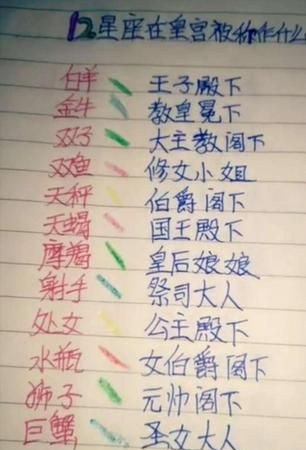 12星座在皇宫被称作什么
白羊 王子殿下
金牛 教皇冕下
双子 大主教阁下
双鱼 修女小姐
天秤 伯爵阁下
天蝎 国王殿下
摩羯 皇后娘娘
射手 祭司大人
处女 公主殿下
水瓶 女伯爵阁下
狮子 元帅阁下
巨蟹 圣女大人